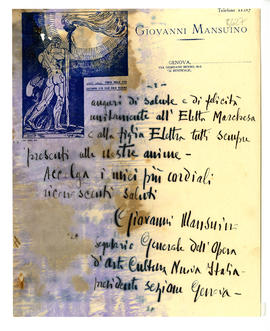 Telefono
GIOVANNI MANSUINO
GENOVA,
auguri di salute e di felicità
unitamente all' Eletta Marchesa
e alla figlia Elettra tutti sempre
presenti alle nostre anime -
Accolga i miei più cordiali
riconoscenti saluti
Giovanni Mansuino
segretario Generale dell' Opera
d'Arte Cultura Nuova Italia -
presidente sezione Genova -